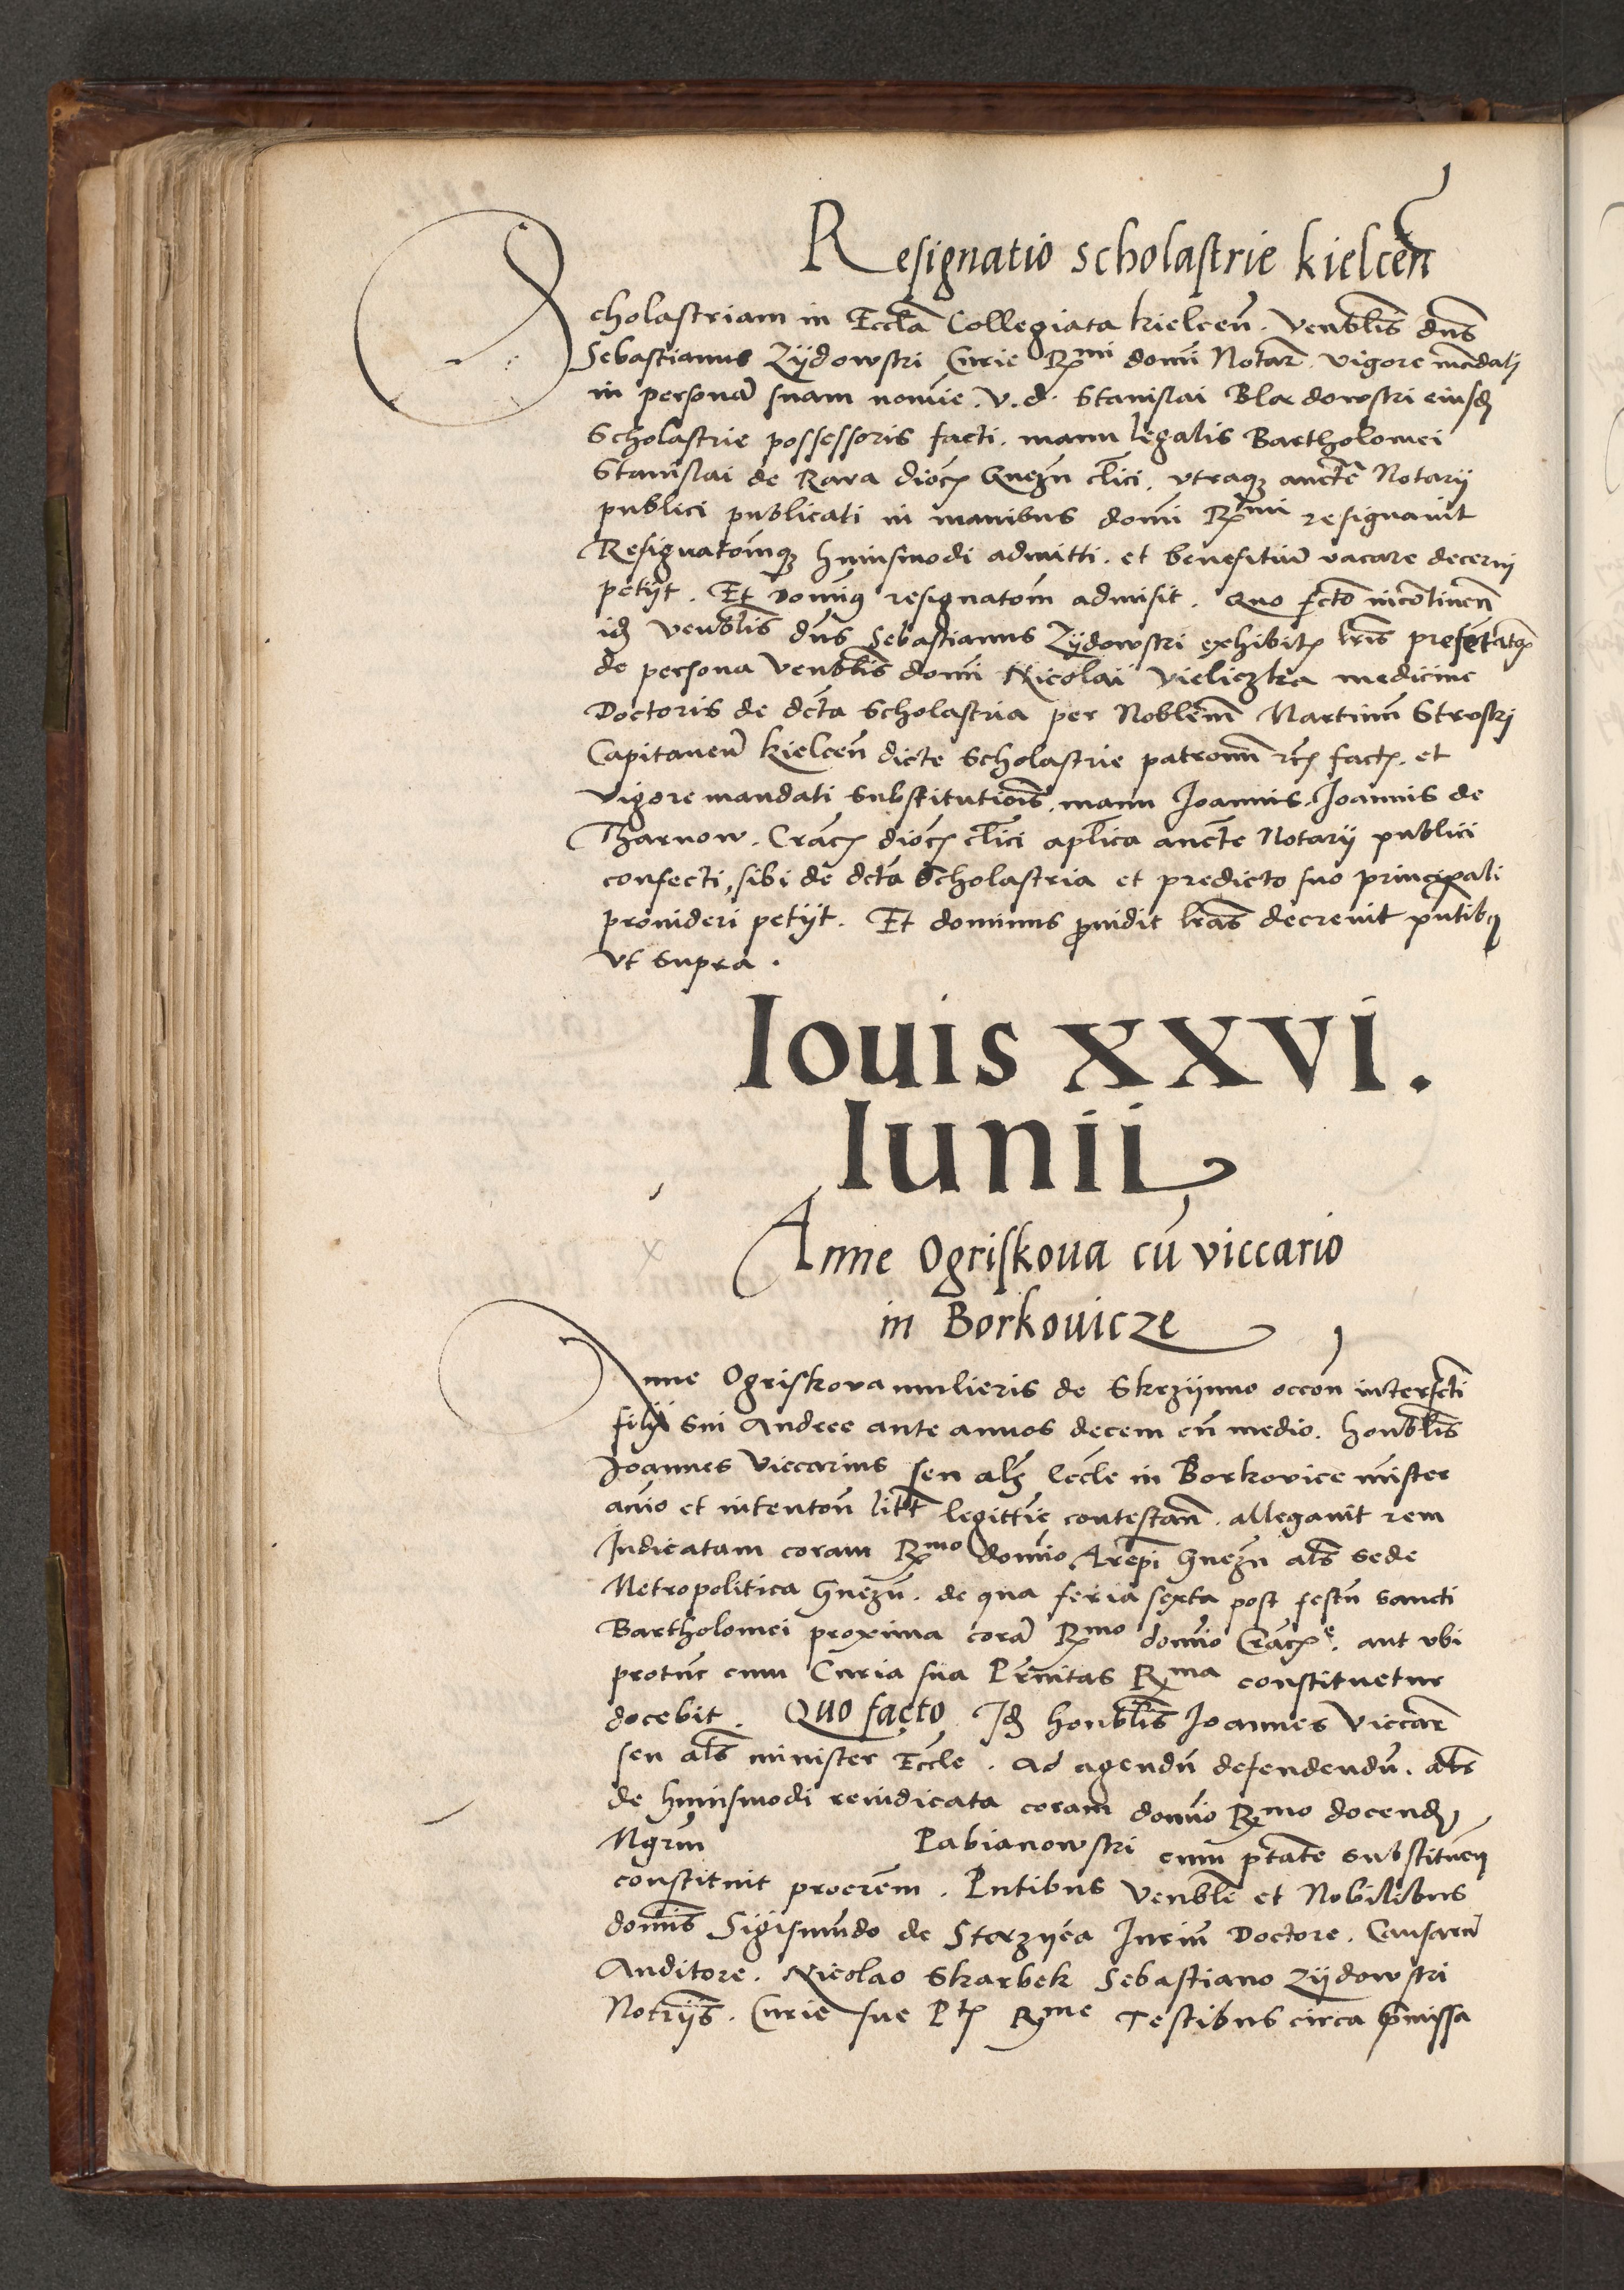 Resignatio scholastrie kielceñ
Scholastriam in Eccła Collegiata kielceñ. Venblis dñs
Sebastianus Zÿdowski Curie Rmi domi Notar. vigore mãdati
in personã suam nomie. v. d. Stanislai Bladowski eiusd
Scholastrie possessoris facti. manu legalis Bartholomei
Stanislai de Rava dioc Gnezñ clici. utraq aucte Notarij
publici publicati in manibus domi Rmi resignavit
Resignatomq huiusmodi admitti. et benefitiũ vacare decerni
petijt. Et Dominq resignatom admisit. Quo fcto incontineñ
id Venblis dñs Sebastianus Zÿdowski exhibit lris
de persona Venblis domi Nicolai vieliczka medicine
Doctoris de dcta Scholastria per Noblem Martinũ Strosky
Capitaneũ kielceñ dicte Scholastrie patronũ fact. et
vigore mandati substitutiois. manu Joannis. Joannis de
Tharnow. Crac dioc clici aplica aucte Notarij publici
confecti, sibi de dcta Scholastria et predicto suo principali
provideri petijt. Et dominus pvidit lras decrevit pntibq
ut supra.
Iouis XXVI.
Iunii
Anne Ogriskoua cũ viccario
in Borkouicze
Anne Ogriskova mulieris de Skrzijnno occoñ interfcti
filij sui Andree ante annos decem cũ medio. honblis
Joannes viccarius seu als Eccle in Borkovice mister
aio et intentoñ litẽ legittime contestañ. allegavit rem
Judicatam coram Rmo domio Arepi Gnezñ als sede
Metropolitica Gnezñ. de qua feria sexta post festũ sancti
Bartholomei proxima corã Rmo domio Crac. aut ubi
protunc cum Curia sua Prnitas Rma constituetur
docebit. Quo facto Jd honblis Joannes Viccar
seu als minister Eccle. Ad agendũ defendendũ. als
de huiusmodi reiudicata coram domio Rmo docend
Mgrm Pabianowski cum ptate substitueñ
constituit procrem. Pntibus Venble et Nobilibus
domis Sigismũdo de Starzijca Juriũ Doctore. Causarũ
Auditore. Nicolao Skarbek Sebastiano Zijdowski
Notrijs. Curie sue Pt Rme Testibus circa pmissa